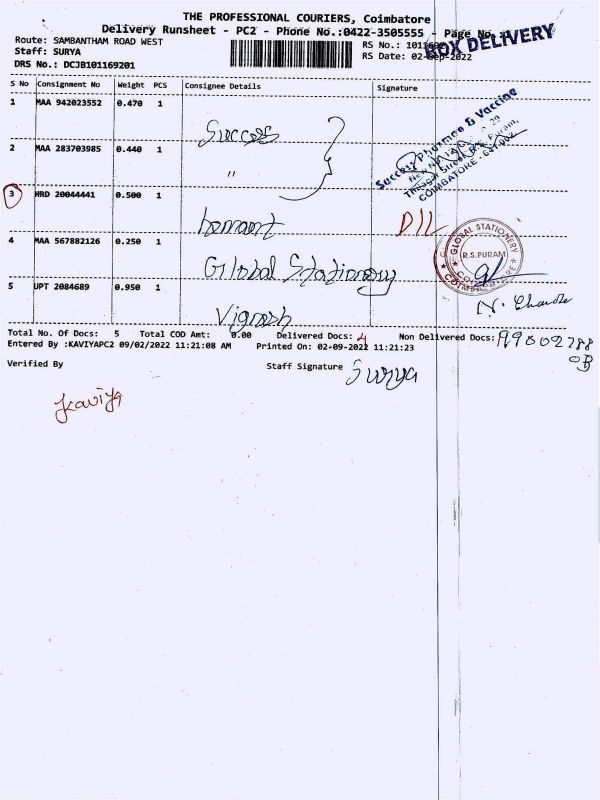 THE PROFESSIONAL COURIERS, Coimbatore
Delivery Runsheet - PC2 - Phone No.:0422-3505555 - Page No.:1
BOX DELIVERY
Route: SAMBANTHAM ROAD WEST
Staff: SURYA
DRS No.: DCJB101169201
RS No.: 1011692
RS Date: 02-Sep-2022
S No Consignment No Weight PCS Consignee Details Signature
1 MAA 942023552 0.470 1 Success
2 MAA 283703985 0.440 1 "
Success Pharma & Vaccine
Street, R.S. Puram,
COIMBATORE - 641 002
3 HRD 20044441 0.500 1 D/L
4 MAA 567882126 0.250 1 Gllobal Stationery
GLOBAL STATIONERY
R.S.PURAM
5 UPT 2084689 0.950 1 Vignesh
Total No. Of Docs: 5 Total COD Amt: 0.00 Delivered Docs: 4 Non Delivered Docs:
Entered By :KAVIYAPC2 09/02/2022 11:21:08 AM Printed On: 02-09-2022 11:21:23
Verified By Staff Signature Surya
Kaviya